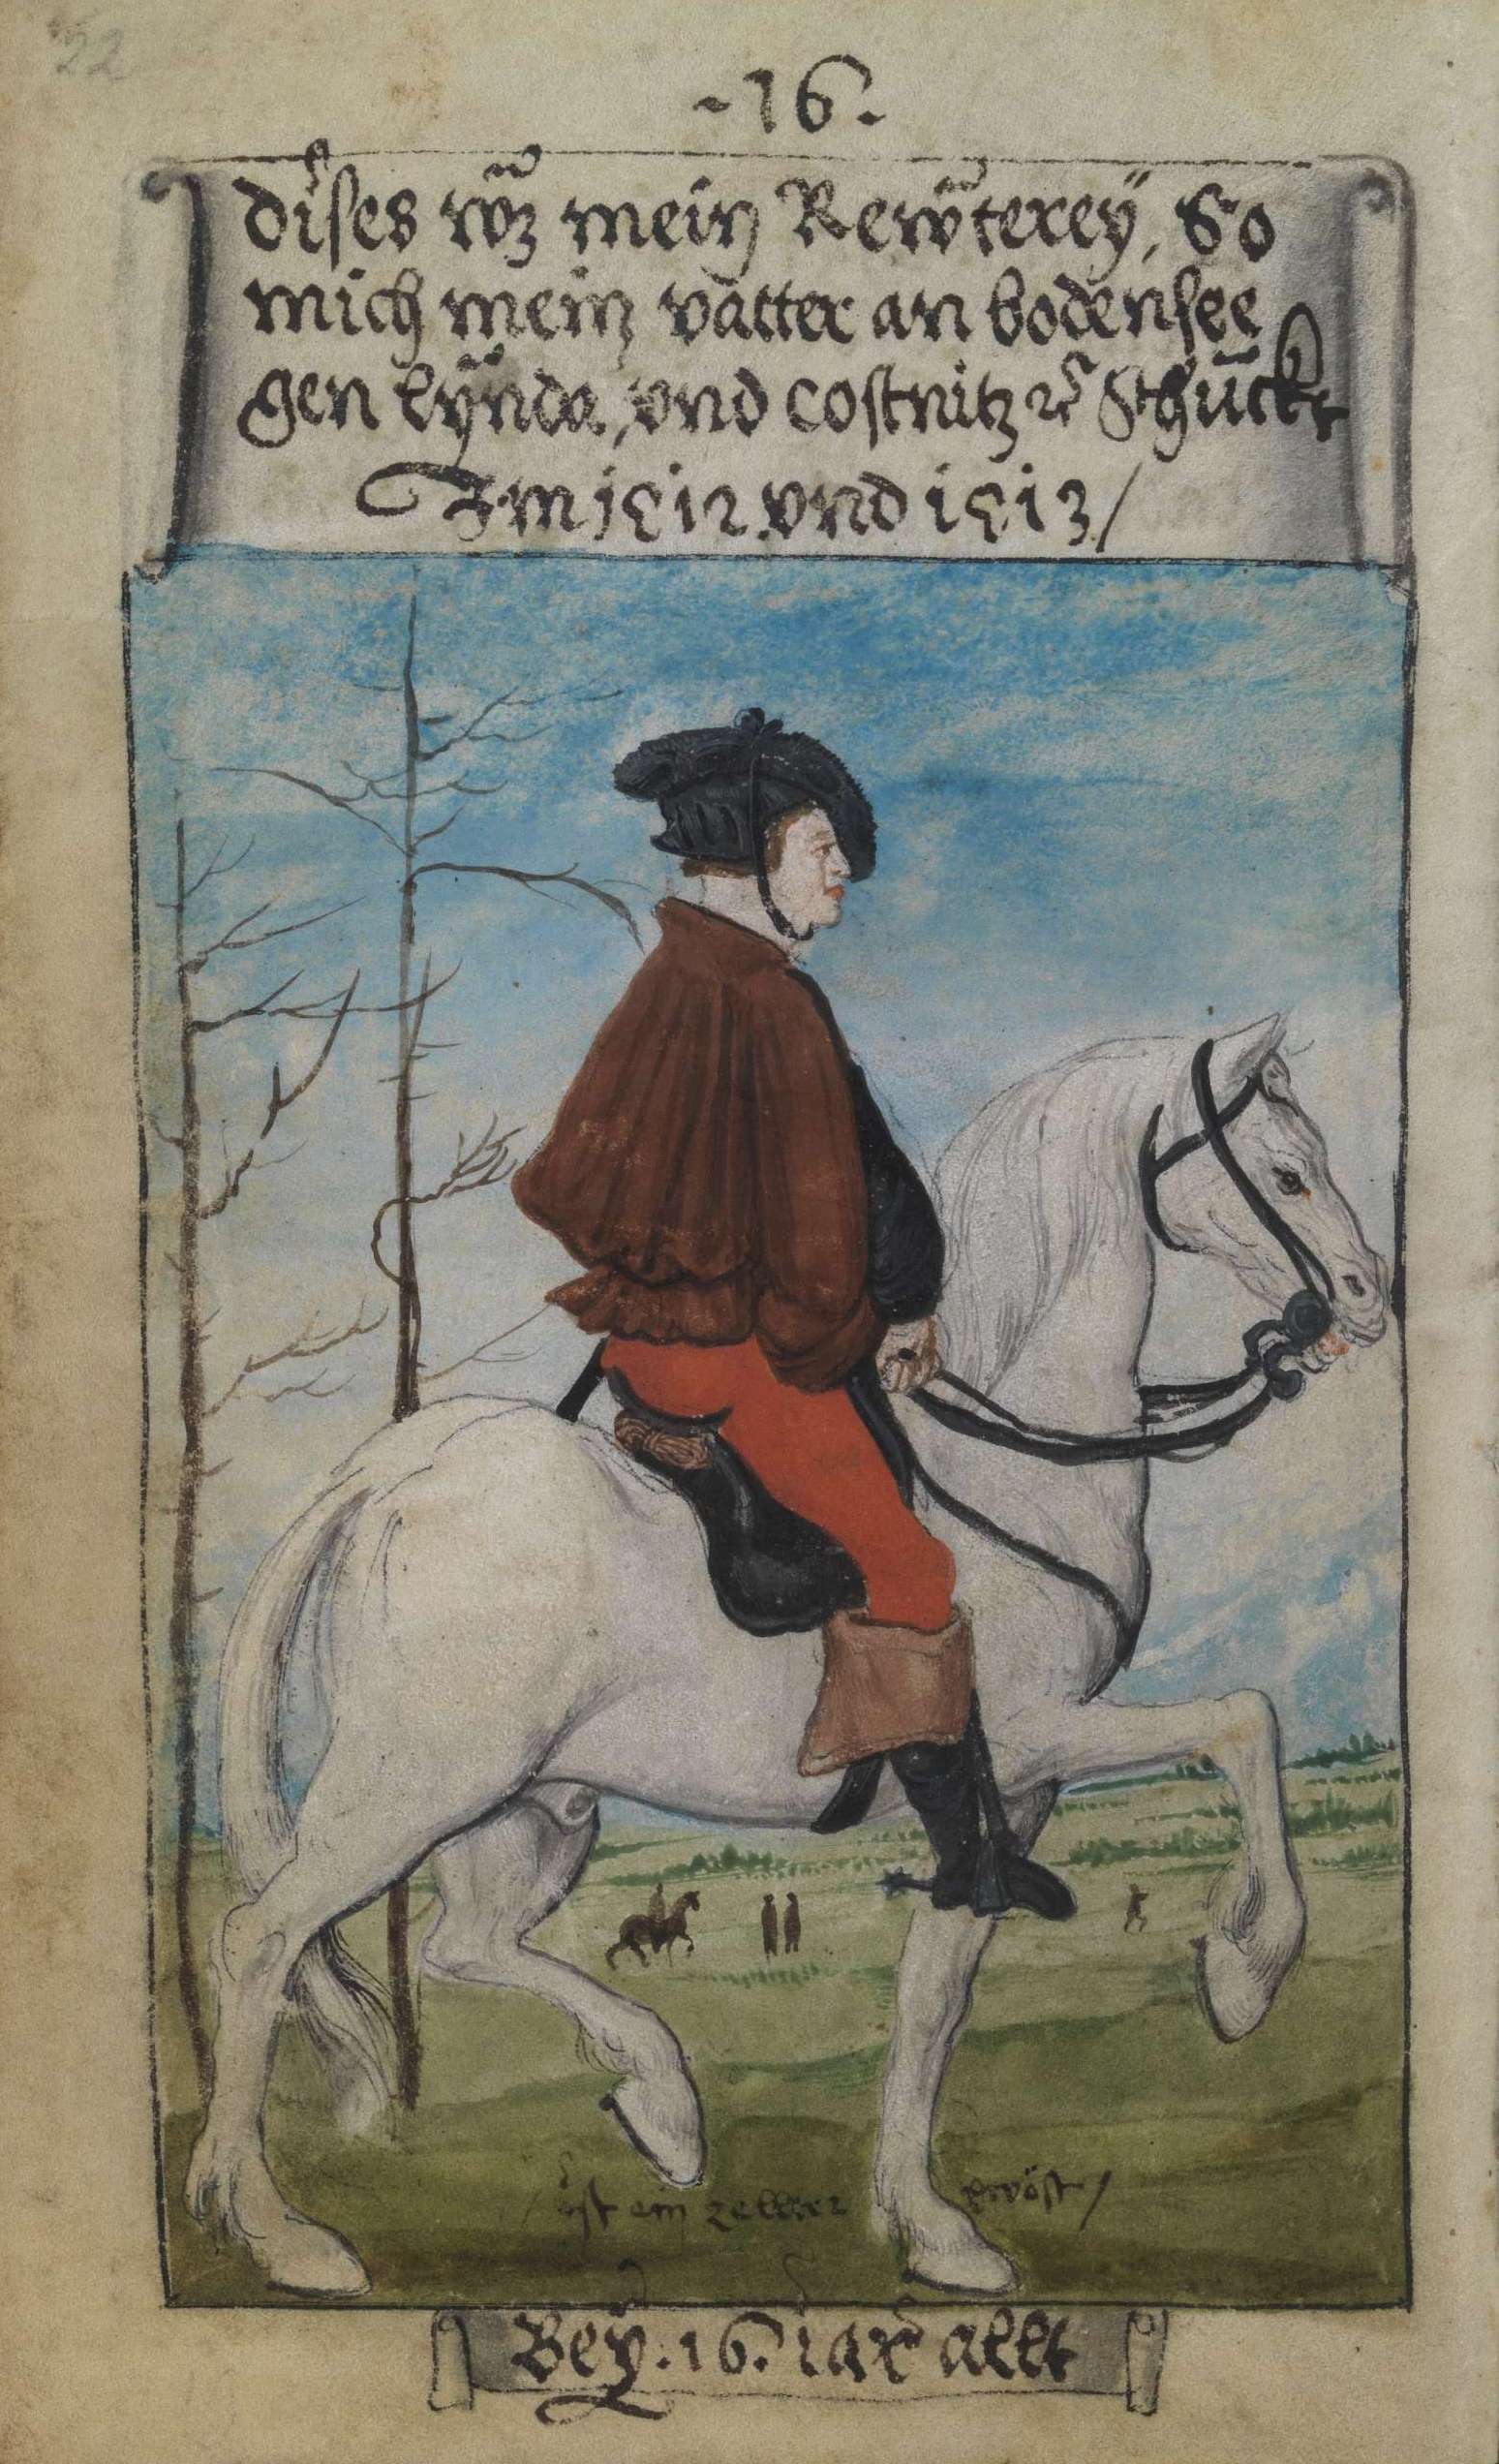 22
-16.
dises wz mein Rewterey, So
mich mein vatter an bodensee
gen lynda, vnd costnitz rc Schückt
Im 1512 vnd 1513 /
ist ein zelltter gwöst /
Bey .16. iar allt